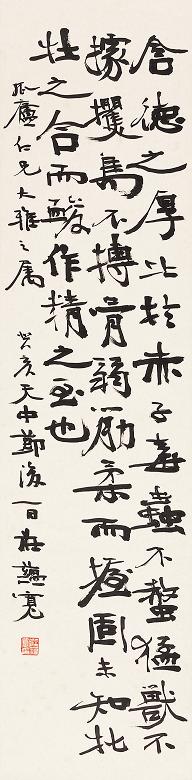 含德之厚比於赤子毒蟲不螫猛獸不
據攫鳥不搏骨弱筋柔而握固未知牝
牡之合而酸作精之至也
孤廬仁兄大雅之屬 癸亥天中節後一日莊蘊寬